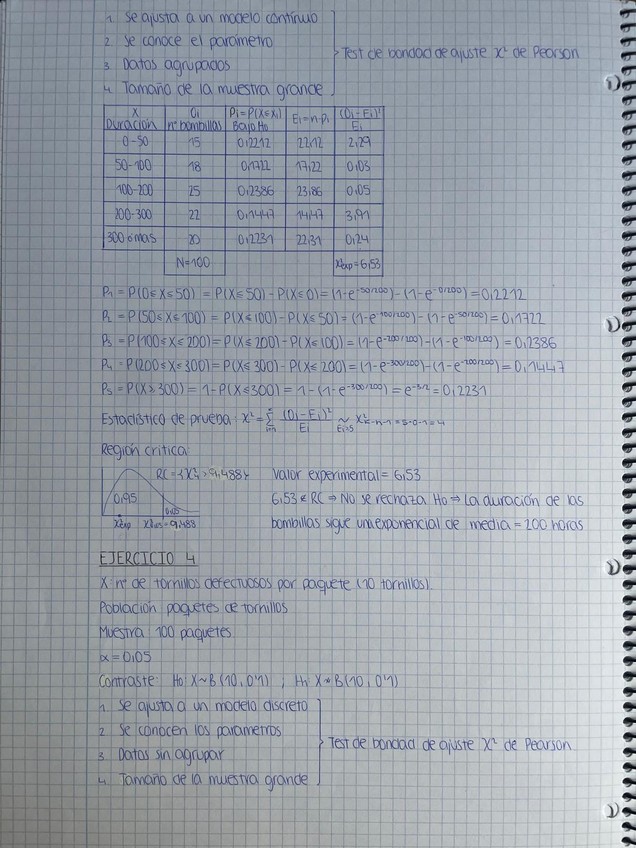 1. Se ajusta a un modelo contínuo
2. Se conoce el parámetro
3. Datos agrupados
4. Tamaño de la muestra grande
Test de bondad de ajuste χ² de Pearson
X Duración | Oi nº bombillas | Pi=P(X∈Xi) Bajo H0 | Ei=n·pi | (Oi-Ei)²/Ei
0-50 | 15 | 0,2212 | 22,12 | 2,29
50-100 | 18 | 0,1722 | 17,22 | 0,03
100-200 | 25 | 0,2386 | 23,86 | 0,05
200-300 | 22 | 0,1447 | 14,47 | 3,91
300 ó mas | 20 | 0,2231 | 22,31 | 0,24
N=100 | χ²exp=6,53
P1 = P(0≤X≤50) = P(X≤50) - P(X≤0) = (1-e^-50/200) - (1-e^-0/200) = 0,2212
P2 = P(50≤X≤100) = P(X≤100) - P(X≤50) = (1-e^-100/200) - (1-e^-50/200) = 0,1722
P3 = P(100≤X≤200) = P(X≤200) - P(X≤100) = (1-e^-200/200) - (1-e^-100/200) = 0,2386
P4 = P(200≤X≤300) = P(X≤300) - P(X≤200) = (1-e^-300/200) - (1-e^-200/200) = 0,1447
P5 = P(X>300) = 1 - P(X≤300) = 1 - (1-e^-300/200) = e^-3/2 = 0,2231
Estadístico de prueba: χ² = Σ (Oi-Ei)²/Ei ~ Ei≥5 χ²k-h-1=5-0-1=4
Región crítica:
RC={χ²4 > 9,488}
0,95
0,05
χ²exp
9,488
Valor experimental = 6,53
6,53 ∉ RC ⇒ No se rechaza H0 ⇒ La duración de las
bombillas sigue una exponencial de media = 200 horas
EJERCICIO 4
X: nº de tornillos defectuosos por paquete (10 tornillos).
Población: paquetes de tornillos
Muestra: 100 paquetes
α = 0,05
Contraste: H0: X~B(10, 0'1) ; H1: X≁B(10, 0'1)
1. Se ajusta a un modelo discreto
2. Se conocen los parámetros
3. Datos sin agrupar
4. Tamaño de la muestra grande
Test de bondad de ajuste χ² de Pearson